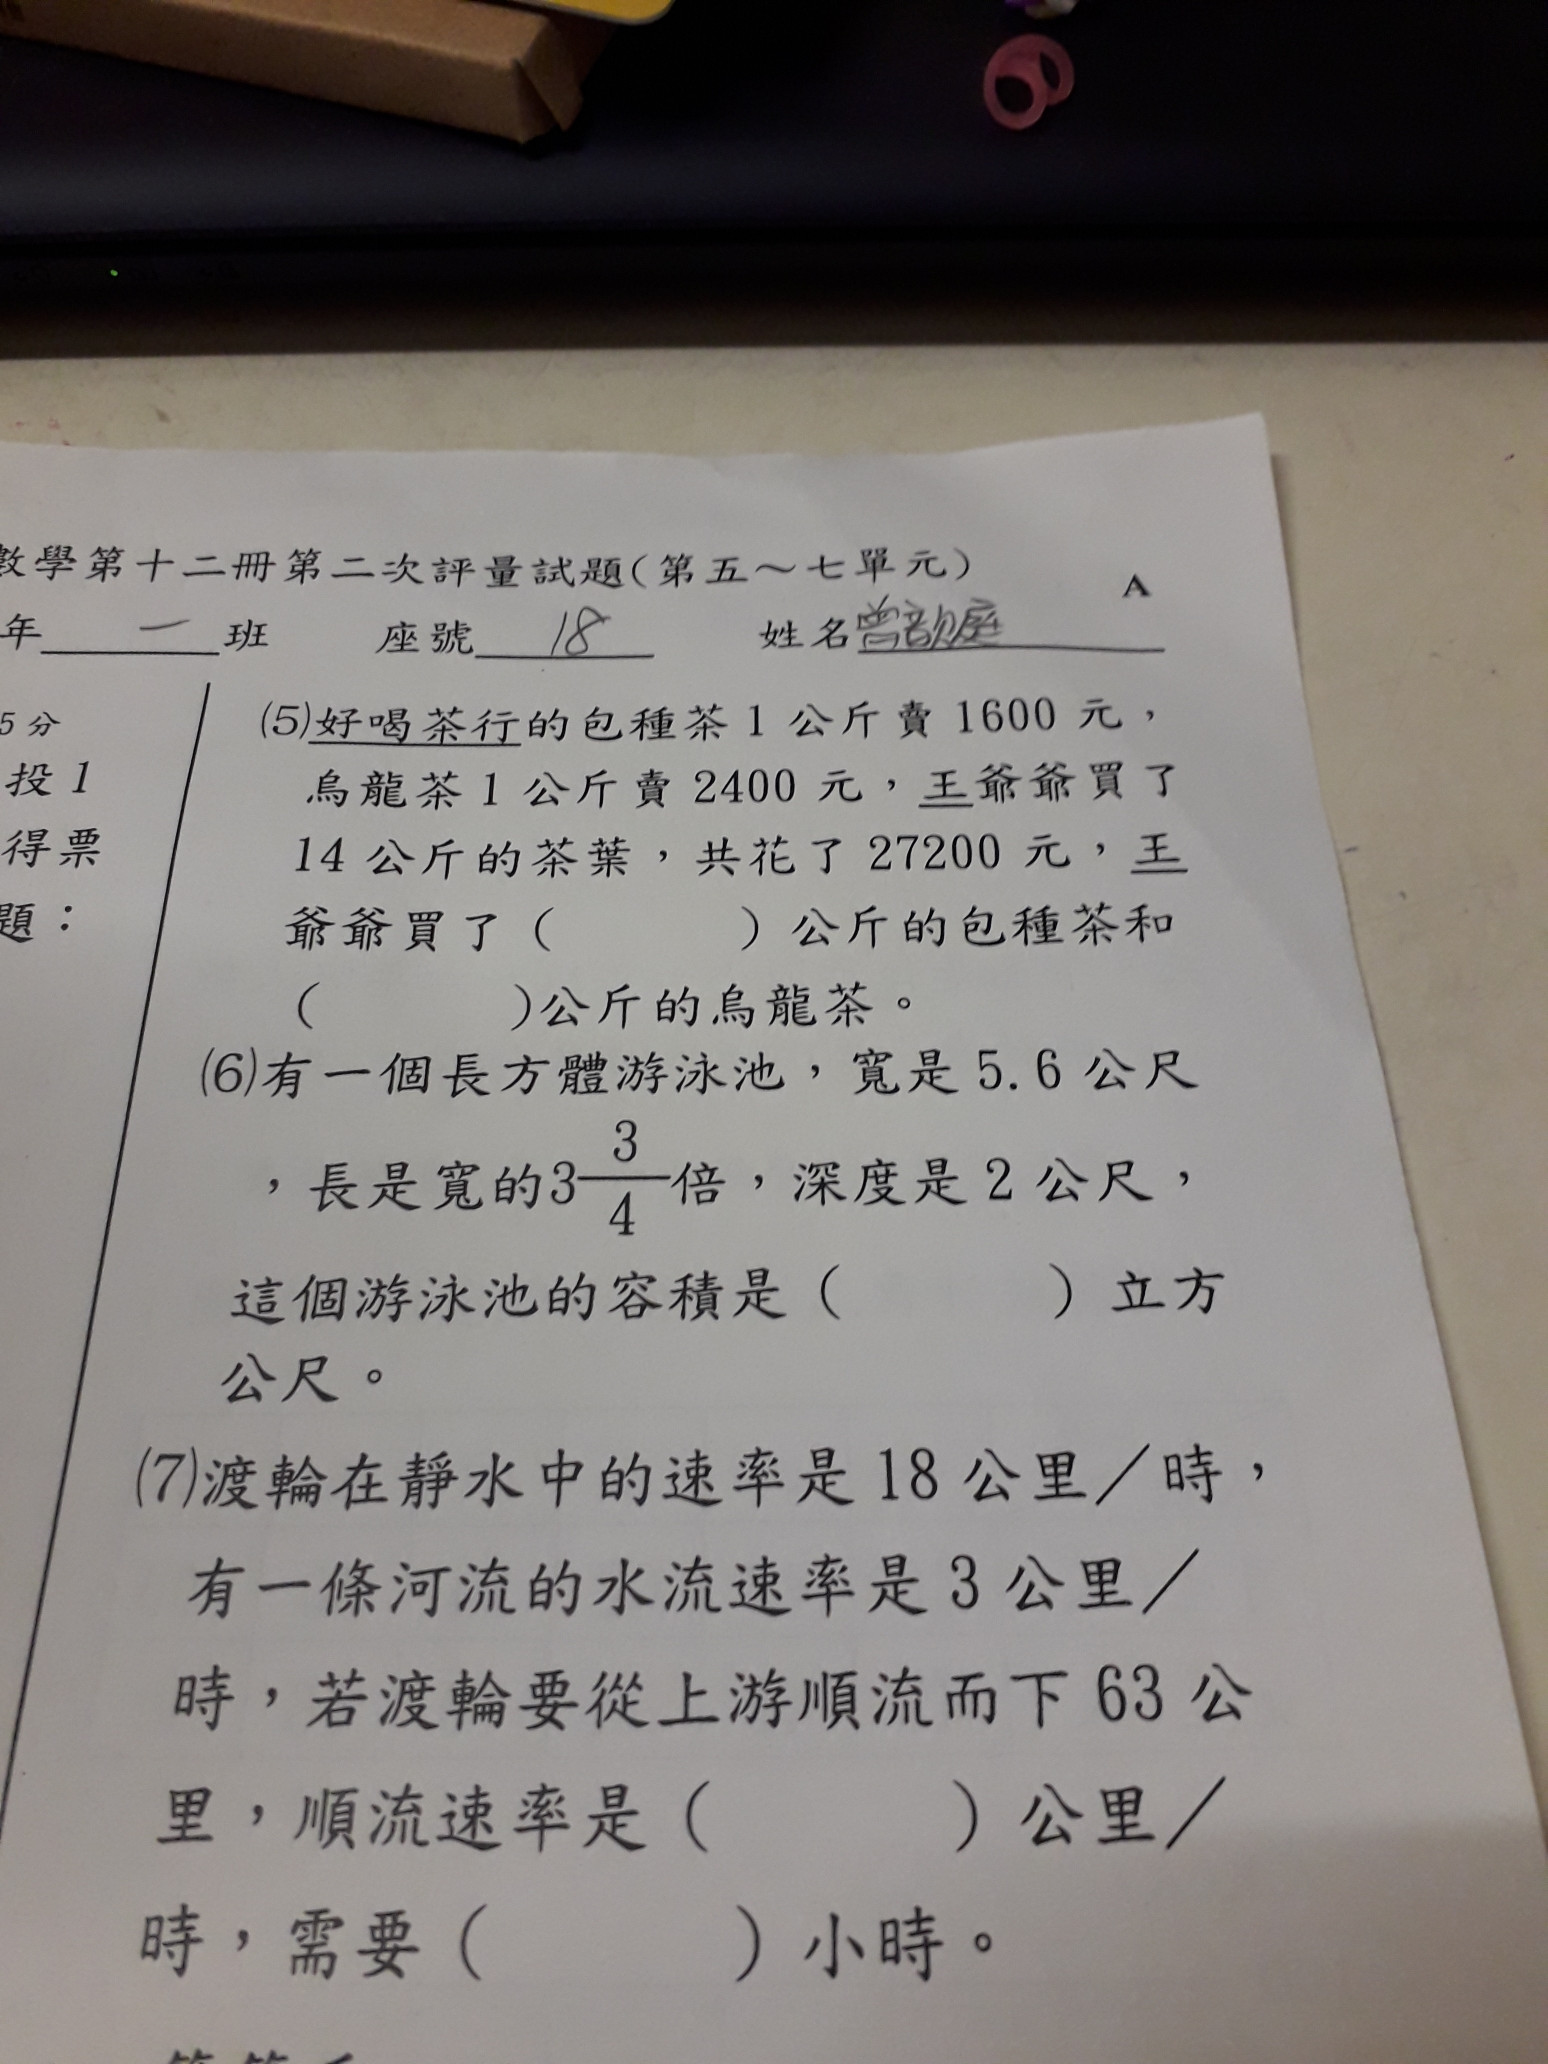 數學第十二冊第二次評量試題(第五～七單元)
A
年 一 班 座號 18 姓名 曾歆庭
5分
投1
得票
題：
⑸好喝茶行的包種茶1公斤賣1600元，
烏龍茶1公斤賣2400元，王爺爺買了
14公斤的茶葉，共花了27200元，王
爺爺買了（　　）公斤的包種茶和
(　　)公斤的烏龍茶。
⑹有一個長方體游泳池，寬是5.6公尺
，長是寬的3 3/4倍，深度是2公尺，
這個游泳池的容積是（　　）立方
公尺。
⑺渡輪在靜水中的速率是18公里／時，
有一條河流的水流速率是3公里／
時，若渡輪要從上游順流而下63公
里，順流速率是（　　）公里／
時，需要（　　）小時。